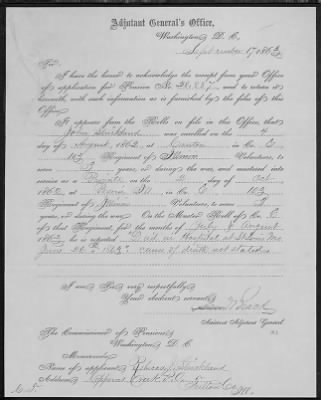 Adjutant General's Office,
Washington, D. C.
1863
Sir:
I have the honor to acknowledge the receipt from your Office
of application for Pension No.
and to return it
herewith, with such information as is furnished by the files of this
Office.
It appears from the Rolls on file in this Office, that
John Strickland was enrolled on the 4
day of August, 1862, at Canton in Co. E
103 Regiment of Illinois Volunteers, to serve
3 years, or during the war, and mustered into
service as a Private on the 2 day of Oct.
1862, at Peoria Ill in Co. E 103
Regiment of Illinois Volunteers, to serve 3
years, or during the war. On the Muster Roll of Co. E
of that Regiment, for the months of July & August
1863, he is reported "Died in Hospital at St. Louis Mo
June 1863" cause of death not stated.
I am, Sir, very respectfully,
Your obedient servant,
Assistant Adjutant General.
The Commissioner of Pensions,
Washington, D. C.
Memoranda:
Name of applicant, Strickland
Address, Creek P.O.
Fulton Co. Ill.